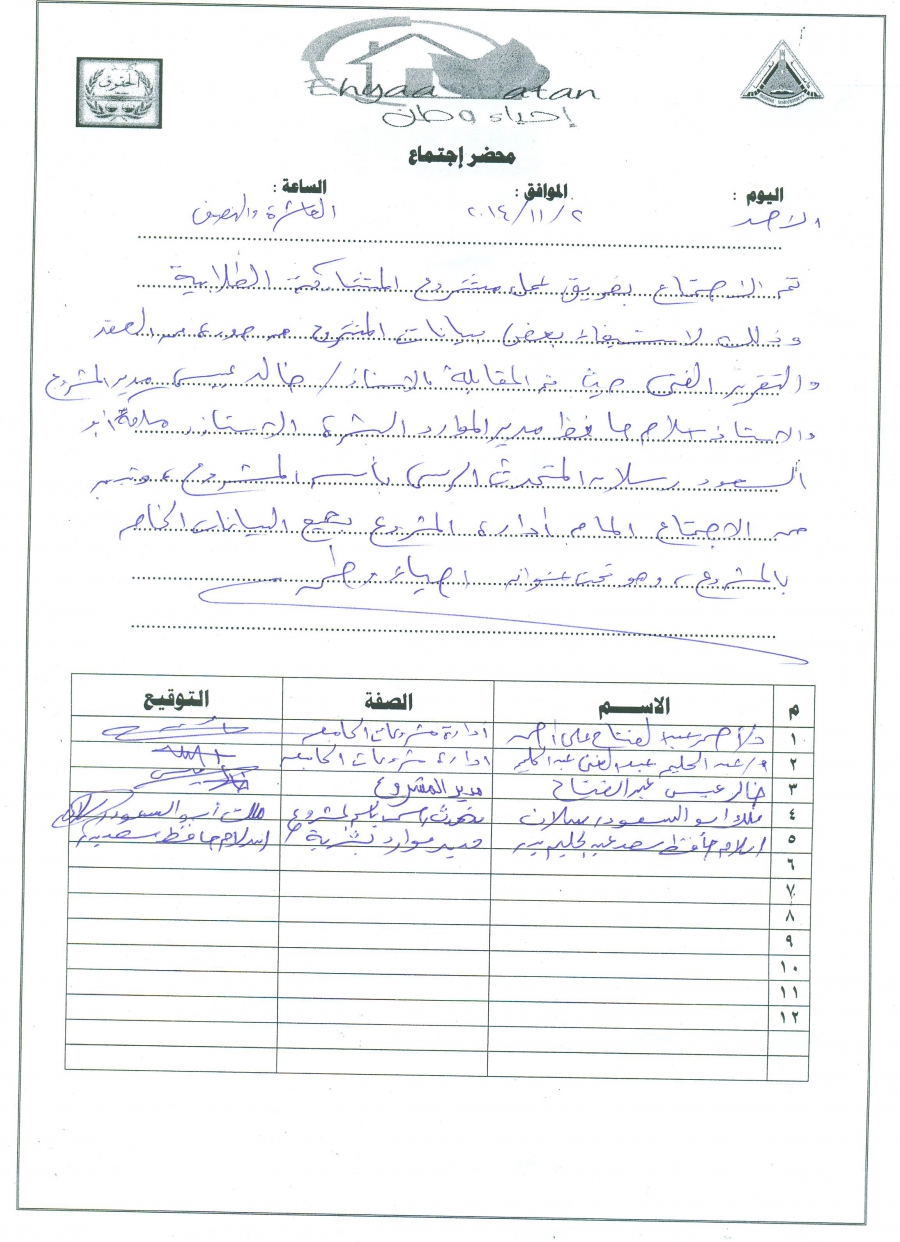 الحقوق
Ehyaa Watan
إحياء وطن
محضر إجتماع
اليوم : الموافق : الساعة :
الأحد ٢٠١٤/١١/٢ العاشرة والنصف
تم الاجتماع بفريق عمل مشروع المشاركة الطلابية
وذلك لاستيفاء بعض بيانات المشروع من صورة من العقد
والتقرير الفنى حيث تم المقابلة بالاستاذ / خالد عيسى مدير المشروع
والاستاذ اسلام حافظ مدير الموارد البشرية الاستاذ ابو
السعود رسلان المتحدث الرسمى بأسم المشروع ، وتبين
من الاجتماع المام أدارة المشروع بجميع البيانات الخاصة
بالمشروع ، وهو تحت عنوان احياء وطن
م الاســم الصفة التوقيع
١ عبد الفتاح على ادارة مشروعات الجامعة
٢ د/ عبد الحليم عبد الغنى عبد الحليم ادارة مشروعات الجامعة
٣ خالد عيسى عبد الفتاح مدير المشروع
٤ ملك ابو السعود رسلان متحدث رسمى باسم المشروع ملك أبو السعود رسلان
٥ اسلام حافظ سعد عبد الحليم مدير موارد بشرية اسلام حافظ سعد
٦
٧
٨
٩
١٠
١١
١٢